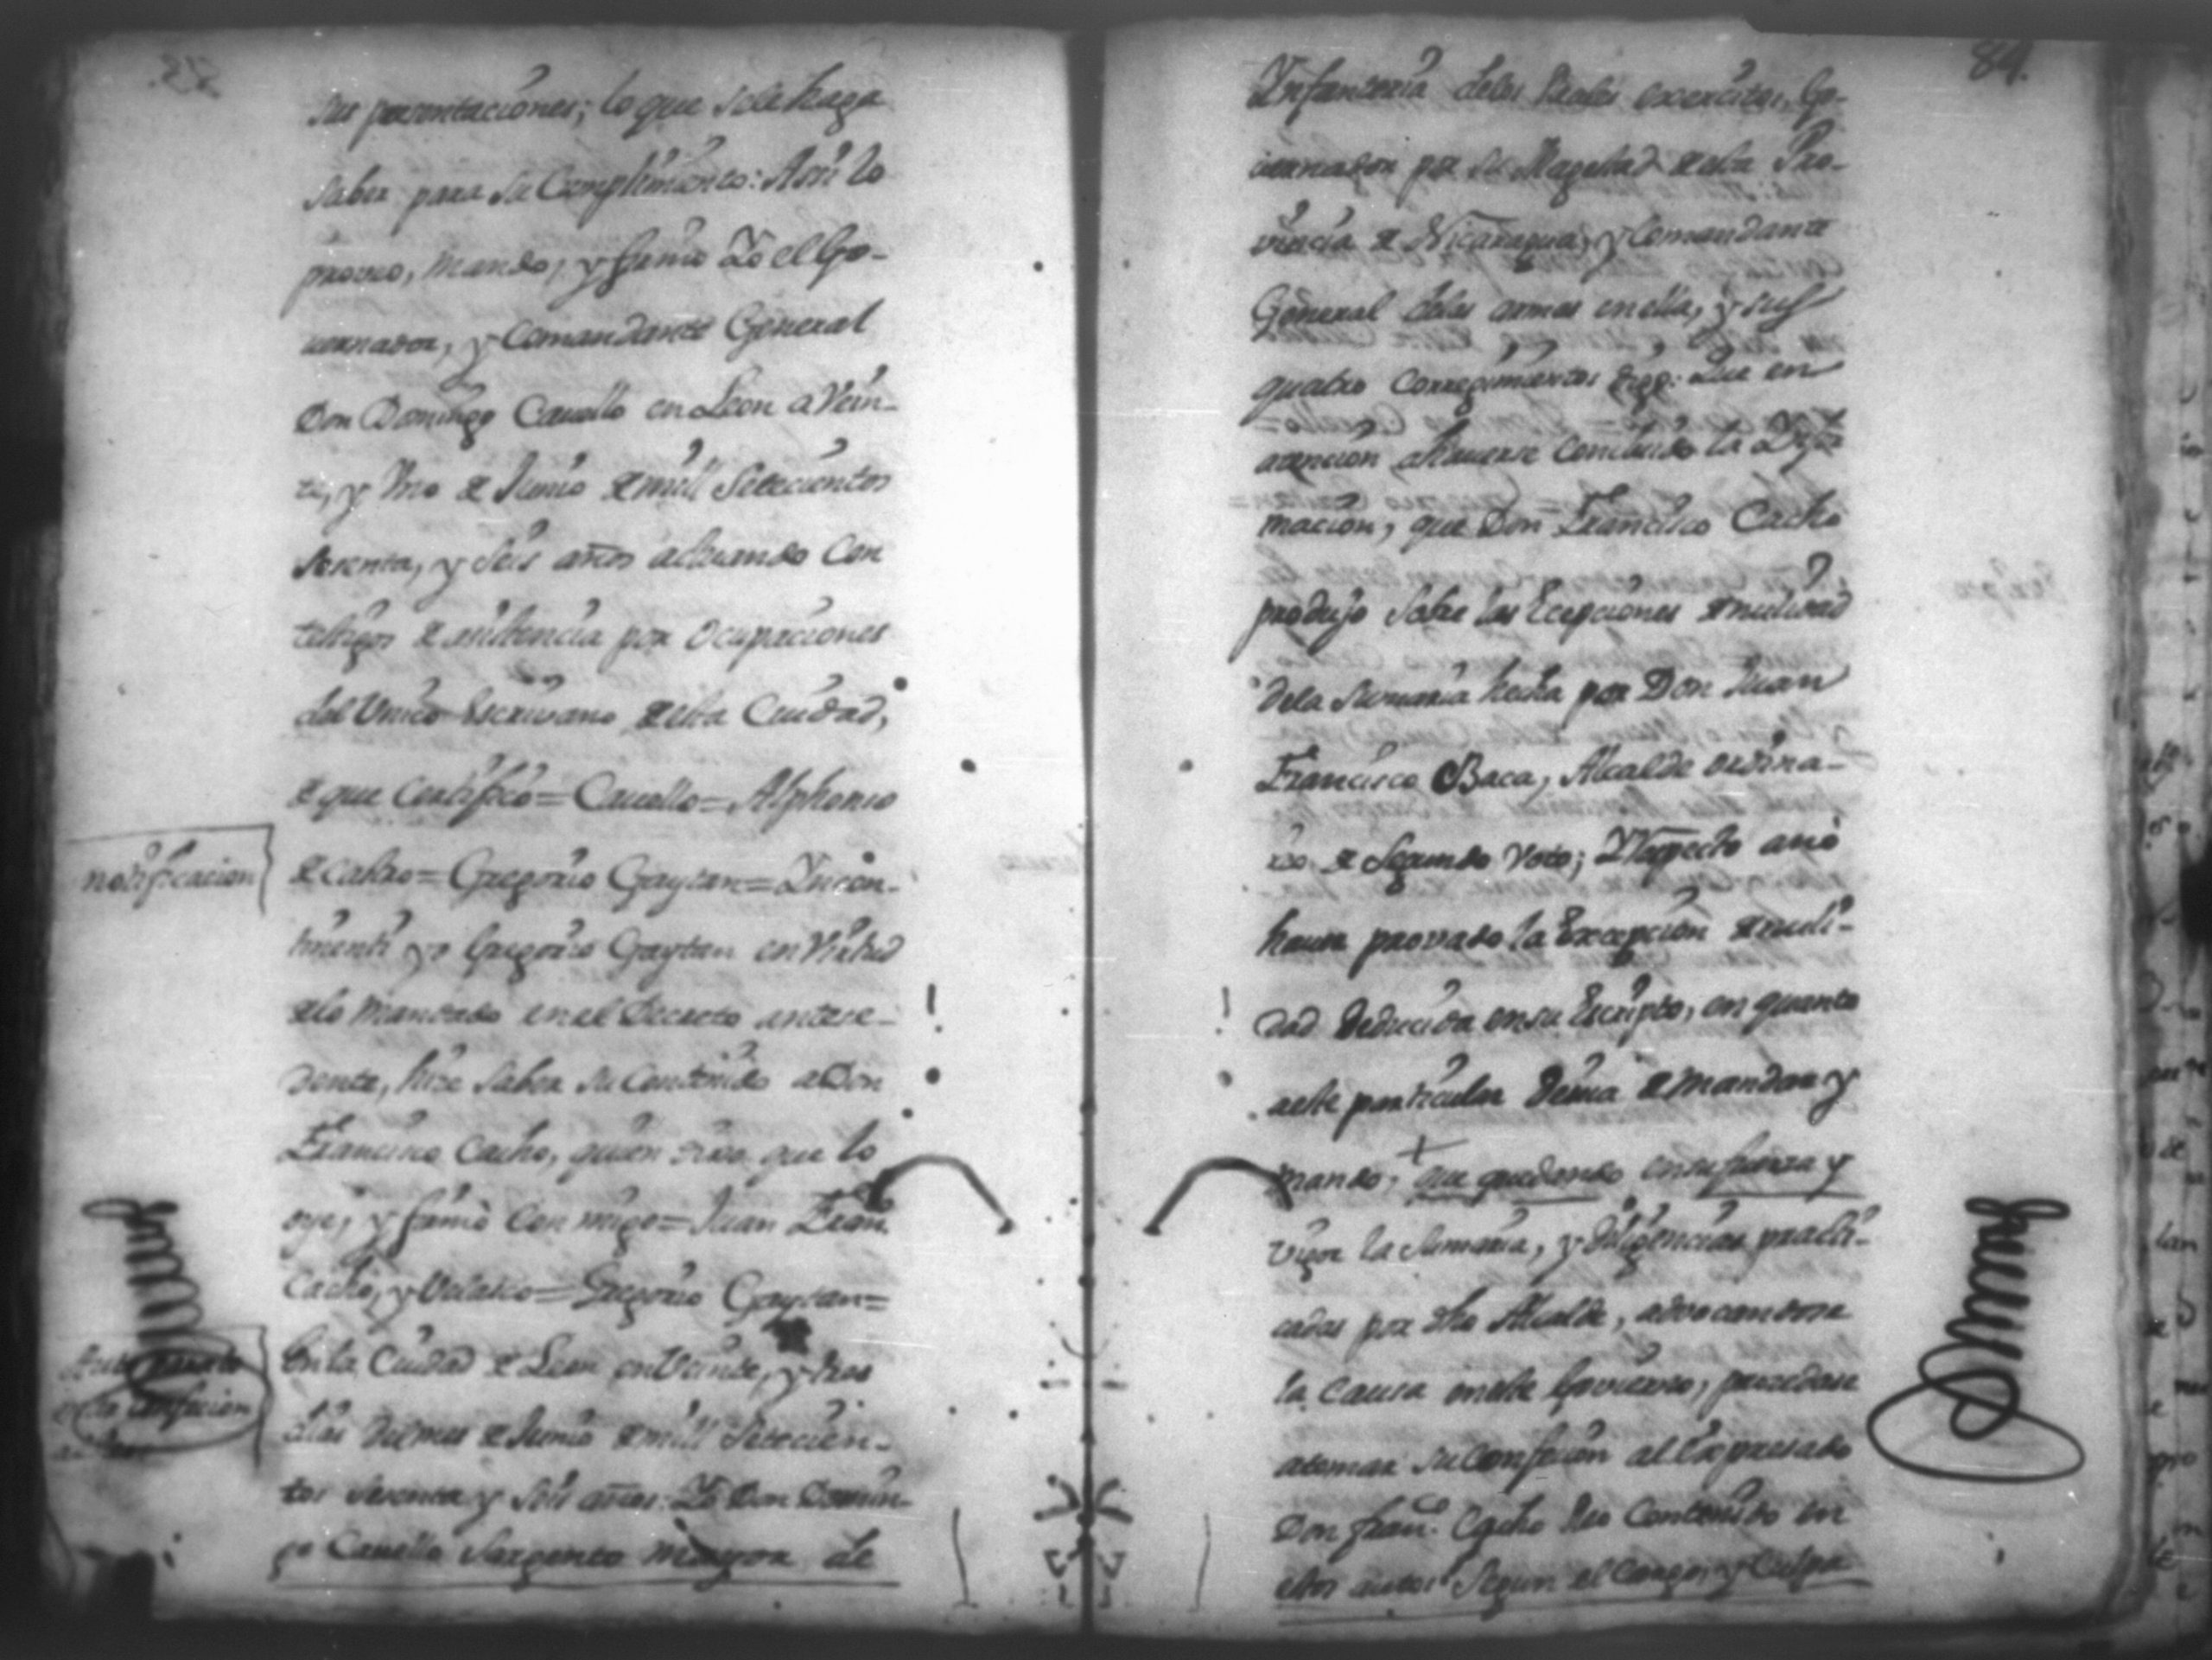 sus presentaciones; lo que se le haga
saber para su Complimiento: Asi lo
proveo, mando, y firmo Yo el Go-
vernador, y Comandante General
Don Domingo Cavello en Leon a Vein-
te, y Uno de Junio de mill Setecientos
Sesenta, y Seis años actuando Con
testigos de asistencia por Ocupaciones
del Unico Escrivano de esta Ciudad,
de que Certifico = Cavello = Alphonso
notificacion
de Castro = Gregorio Gaytan = Yncon-
tinenti yo Gregorio Gaytan en Virtud
de lo mandado en el Decreto antese-
dente, hize saber su Contenido a Don
Francisco Cacho, quien dixo que lo
oye, y firmò Con migo = Juan Fran.co
Cacho, y Velasco = Gregorio Gaytan =
En la Ciudad de Leon en Veinte, y tres
dias del mes de Junio de mill Setecien-
tos Sesenta y Seis años: Yo Don Domin-
go Cavello Sargento mayor de
84.
Ynfanteria delos Reales exercitos, Go-
vernador por su Magestad de esta Pro-
vincia de Nicaragua, y Comandante
General delas armas en ella, y sus
quatro Corregimientos digo: Que en
atencion a haverse Concluido la Ynfor
macion, que Don Francisco Cacho
produjo sobre las Ecepciones de nulidad
dela Sumaria hecha por Don Juan
Francisco Baca, Alcalde ordina-
rio de Segundo Voto; Y respecto a nò
haver provado la Excepcion de nuli-
dad deducida en su Escripto, en quanto
a este particular devia de mandar y
mando, que quedando en su fuerza y
vigor la Sumaria, y diligencias practi-
cadas por dho Alcalde, advocandose
la Causa en este Govierno, procedase
a tomar su Confecion al Expresado
Don Fran.co Cacho Reo Contenido en
estos autos Segun el Cargo, y Culpa